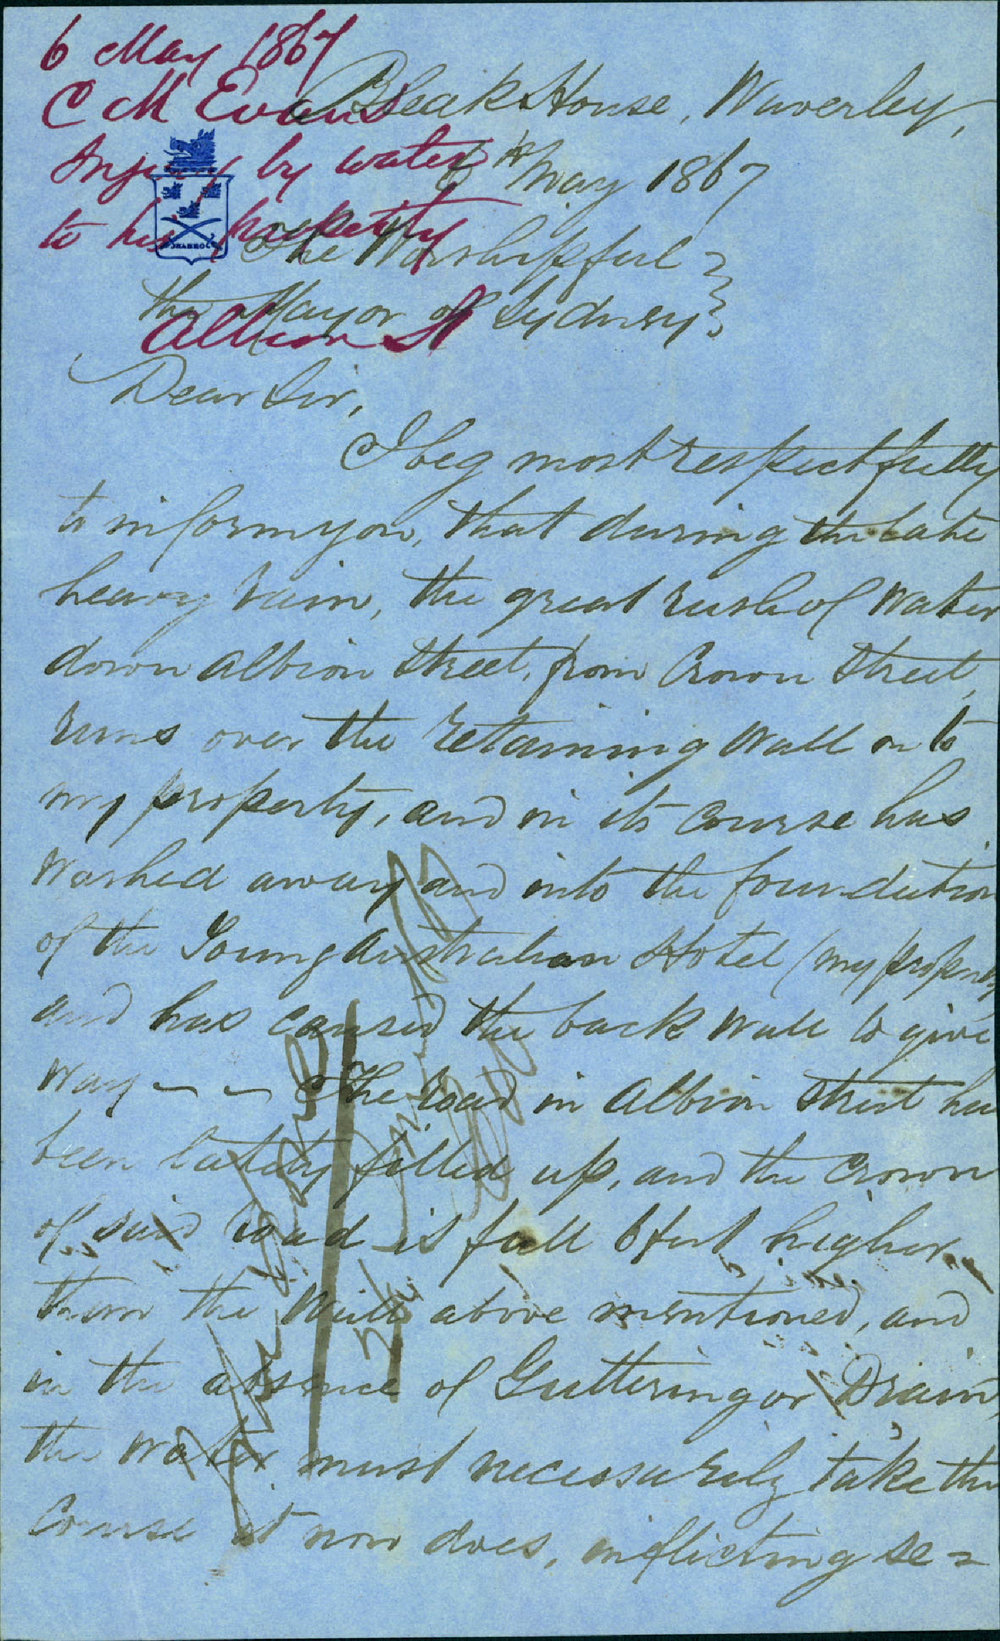 6 May 1867
C M Evans
Injury by water
to his property
Albion St
Bleak House, Waverley,
6th May 1867
The Worshipful
the Mayor of Sydney
Dear Sir,
I beg most respectfully
to inform you, that during the late
heavy rain, the great rush of Water
down Albion Street, from Crown Street,
runs over the retaining Wall on to
my property, and in its course has
Washed away and into the foundation
of the Young Australian Hotel (my property
and has caused the back Wall to give
Way - - The Road in Albion Street has
been lately filled up, and the Crown
of said road is full 6 feet higher
than the Wall above mentioned, and
in the absence of Guttering or Drain,
the Water must necessarily take the
Course it now does, inflicting se=